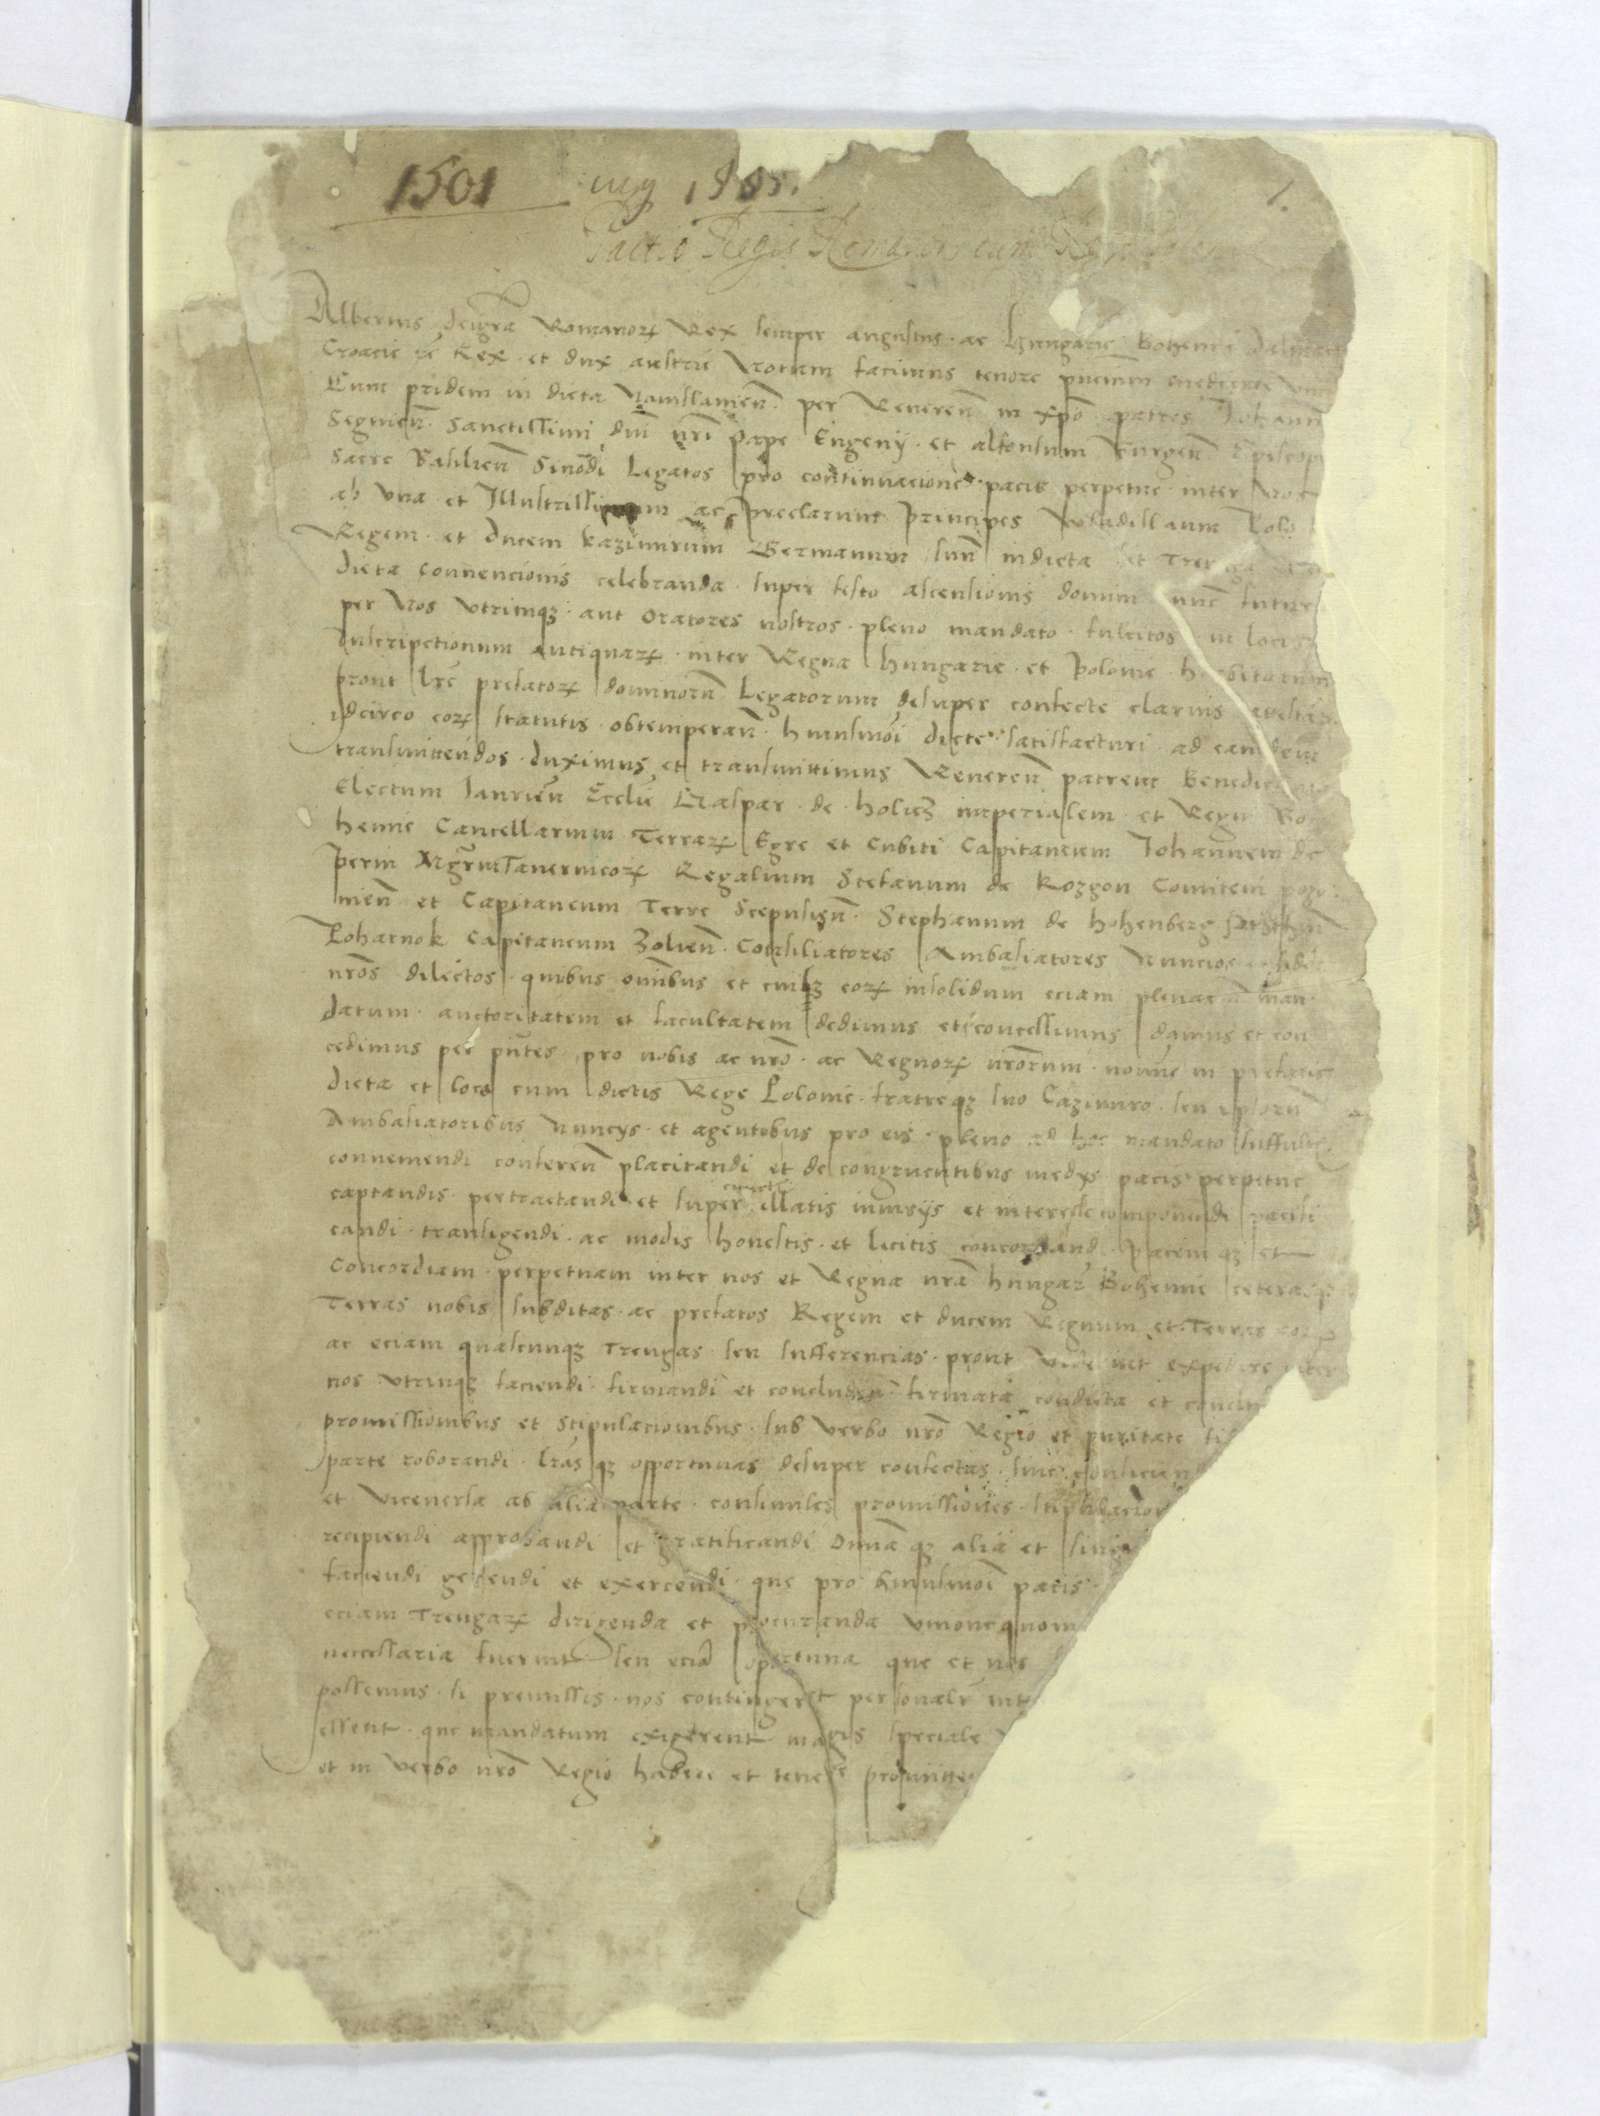 1501 1505.
1.
Pactio Regis Romanorum cum Rege
Albertus dei gra Romanoꝝ Rex semper augustus · ac Hungarie Bohemie
Croacie zc̃ Rex · et dux austrie Notum facimus tenore pñcium
Cum pridem in dieta per Reueren̄ in xp̄o patres Johann
Segnien̄ · Sanctissimi dn̄i nr̄i Pape Eugenij · et alfonsum Burgen̄ Episcop
Sacre Basilien̄ Sinodi Legatos pro continuacione · pacis perpetue inter nos
ab vna · et Illustrissimum ac preclarum Principes Wladislaum Polo
Regem · et ducem kazimirum Germanum suū indicta et
dieta conuencionis celebranda · super festo ascensionis domini nūc futur
per nos vtrimqꝫ · aut oratores nostros · pleno mandato · fulcitos in locis
antiquaꝝ · inter Regna Hungarie · et Polonie
prout lr̄e prefatoꝝ dominorū Legatorum desuper confecte clarius
Idcirco eoꝝ statutis · obtemperan̄ · huiusmōi diete satisfacturi · ad eandem
transmittendos · duximus et transmittimus Reueren̄ patrem Benedic
Electum Jaurien̄ Ecclīe Gaspar · de · imperialem · et Regni Bo
hemie Cancellarium Terraꝝ Egre et Cubiti Capitaneum Johannem de
Perin Mgr̄m Tauernicoꝝ Regalium Stefanum de Rozgon Comitem pozo
nien̄ et Capitaneum Terre Scepusien̄ · Stephanum de Hohenberg
Poharnok Capitaneum Zolien̄ · Consiliatores Ambasiatores Nuncios
nr̄os dilectos · quibus om̄ibus et cuilꝫ eoꝝ insolidum eciam plenaram man
datum · auctoritatem et facultatem dedimus et concessimus damus et con
cedimus per pñtes pro nobis ac nr̄o · ac Regnoꝝ nr̄orum · noīne in prefatis
dieta et loco cum dictis Rege Polonie · fratreqꝫ suo Cazimiro · seu ipsorū
Ambasiatoribus Nuncys · et agentibus pro eis · pleno ad hoc mandato
conueniendi conferen̄ placitandi et de congruentibus medys pacis perpetue
captandis pertractandi · et super illatis iniurijs et interesse componendi pacifi
candi · transigendi · ac modis honestis · et licitis concordand · Pacem qꝫ et
Concordiam · perpetuam inter nos et Regna nr̄a hungar̄ Bohemie ceterasqꝫ
Terras nobis subditas · ac prefatos Regem et ducem Regnum et Terras eoꝝ
ac eciam qualcunqꝫ Treugas seu sufferencias · prout expedire inter
nos vtrinqꝫ faciendi firmandi et concluden̄ firmata condicta et conclu
promissionibus et stipulacionibus · sub verbo nr̄o Regio et puritate fi
parte roborandi · lr̄as qꝫ opportunas desuper confectas
et viceuersa ab alia parte · consimiles promissiones ·
recipiendi approbandi et gratificandi Om̄ia qꝫ alia et singu
faciendi gerendi et exercendi · que pro huiusmōi pacis
eciam Treugaꝝ dirigenda et procuranda vnione quom
neccessaria fuerint seu ecia oportuna que et nos
possemus · si premissis · nos contingeret personalr̄ int
essent · que mandatum exigerent magis speciale
et in verbo nr̄o Regio habere et tenere promitte